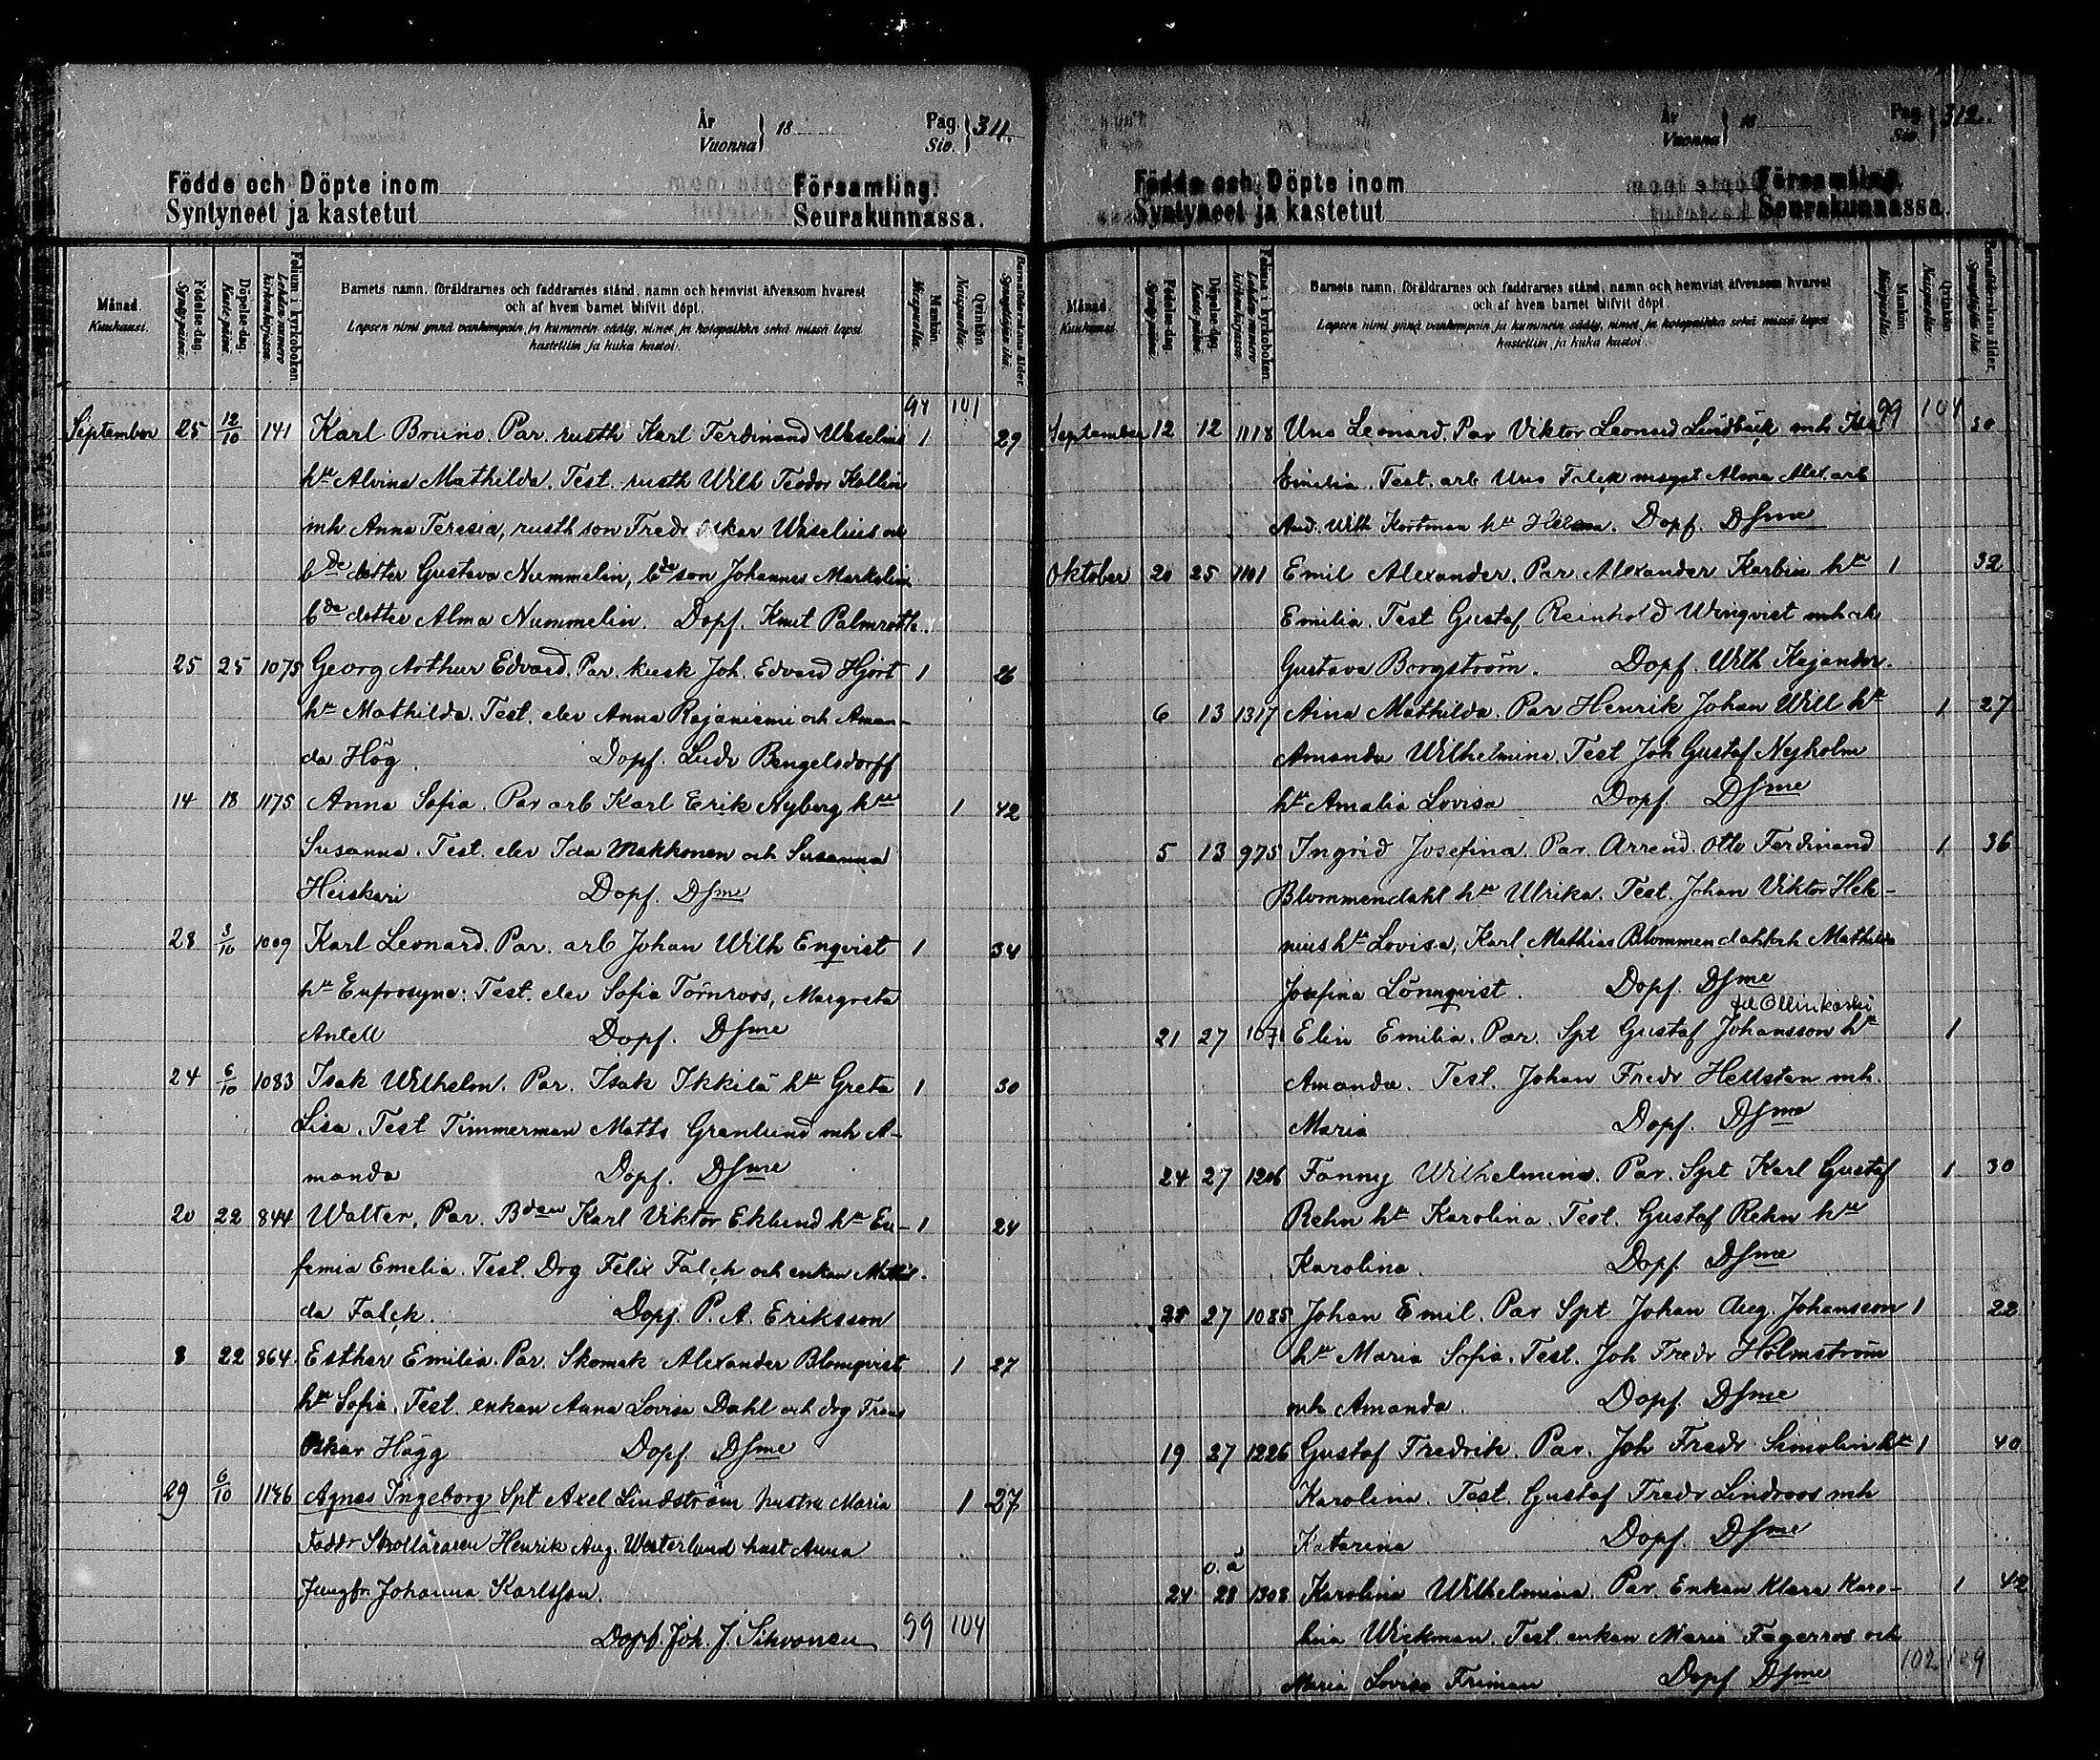 År
Vuonna 18
Pag.
Siv. 311.
Födde och Döpte inom Församling.
Syntyneet ja kastetut Seurakunnassa.
Månad.
Kuukausi.
Födelse-dag.
Syntymä päivä.
Döpelse-dag.
Kaste-päivä.
Folium i kyrkoboken.
Lehden numero kirkonkirjassa.
Barnets namn, föräldrarnes och faddrarnes stånd, namn och hemvist äfvensom hvarest
och af hvem barnet blifvit döpt.
Lapsen nimi ynnä vanhempain ja kummein sääty, nimet ja kotopaikka sekä missä lapsi
kastettiin ja kuka kastoi.
Mankön.
Miespuolta.
Qvinkön.
Naispuolta.
Barnaföderskans ålder.
Synnyttäjän ikä.
94 101
September 25 12/10 141 Karl Bruno. Par. rusth Karl Ferdinand Waselius 1 29
hu Alvina Mathilda. Test. rusth Wilh Teodor Kollin
mh Anna Teresia, rusth son Fredr Oskar Waselius och
bde dotter Gustava Nummelin, bde son Johannes Markelin
bde dotter Alma Nummelin. Döpf. Knut Palmroth.
25 25 1075 Georg Arthur Edvard. Par. kusk Joh. Edvard Hjort 1 26
hu Mathilda. Test. elev Anna Rajaniemi och Aman-
da Hög. Döpf. Ludv Bengelsdorff
14 18 1175 Anna Sofia. Par arb Karl Erik Nyberg hu 1 42
Susanna. Test. elev Ida Makkonen och Susanna
Heiskari Döpf. Dsme
28 3/10 1009 Karl Leonard. Par. arb Johan Wilh Enqvist 1 34
hu Eufrosyne: Test. elev Sofia Törnroos, Margreta
Antell Döpf. Dsme
24 6/10 1083 Isak Wilhelm. Par. Isak Ikkilä hu Greta 1 30
Lisa. Test Timmerman Matts Granlund mh A-
manda Döpf. Dsme
20 22 844 Walter, Par. Bden Karl Viktor Eklund hu Eu- 1 24
femia Emelia. Test. Drg Felix Falck och enkan Mathil-
da Falck. Döpf. P. A. Eriksson
8 22 864. Esther Emilia. Par. Skomak Alexander Blomqvist 1 27
hu Sofia. Test. enkan Anna Lovisa Dahl och drg Frans
Oskar Hägg Döpf. Dsme
29 6/10 1146 Agnes Ingeborg Spt Axel Lindström hustru Maria 1 27
Faddr Skolläraren Henrik Aug. Westerlund hust Anna
Jungfr. Johanna Karlsson.
Döpf. Joh. J. Sihvonen 99 104
År
Vuonna 18
Pag.
Siv. 312.
Födde och Döpte inom Församling.
Syntyneet ja kastetut Seurakunnassa.
Månad.
Kuukausi.
Födelse-dag.
Syntymä päivä.
Döpelse-dag.
Kaste-päivä.
Folium i kyrkoboken.
Lehden numero kirkonkirjassa.
Barnets namn, föräldrarnes och faddrarnes stånd, namn och hemvist äfvensom hvarest
och af hvem barnet blifvit döpt.
Lapsen nimi ynnä vanhempain ja kummein sääty, nimet ja kotopaikka sekä missä lapsi
kastettiin ja kuka kastoi.
Mankön.
Miespuolta.
Qvinkön.
Naispuolta.
Barnaföderskans ålder.
Synnyttäjän ikä.
99 104
September 12 12 1118 Uno Leonard. Par Viktor Leonard Lindbäck mh Ida 30
Emilia. Test. arb Uno Falck Alma Alex. arb
And. Wilh Kortman hu Helena. Döpf. Dsme
Oktober 20 25 1101 Emil Alexander. Par. Alexander Karbin hu 1 32
Emilia. Test Gustaf Reinhold Winqvist mh och
Gustava Borgström. Döpf. Wilh Kajander.
6 13 1317 Aina Mathilda. Par Henrik Johan Will hu 1 27
Amanda Wilhelmina. Test Joh Gustaf Nejholm
hu Amalia Lovisa Döpf. Dsme
5 13 975 Ingrid Josefina. Par. Arrend. Otto Ferdinand 1 36
Blommendahl hu Ulrika. Test. Johan Viktor Hele-
nius hu Lovisa, Karl Mathias Blommendahl och Mathilda
Josefina Lönnqvist. Döpf. Dsme
fd Ollinkoski
21 27 1071 Elin Emilia. Par. Spt Gustaf Johansson hu 1
Amanda. Test. Johan Fredr Hellsten mh.
Maria Döpf. Dsme
24 27 1206 Fanny Wilhelmina. Par. Spt Karl Gustaf 1 30
Rehn hu Karolina. Test. Gustaf Rehn hu
Karolina. Döpf. Dsme
25 27 1085 Johan Emil. Par Spt Johan Aug. Johansson 1 22
hu Maria Sofia. Test. Joh Fredr Holmström
mh Amanda. Döpf. Dsme
19 27 1226 Gustaf Fredrik. Par. Joh Fredr Simolin hu 1 40
Karolina. Test. Gustaf Fredr Lindroos mh
Katarina Döpf. Dsme
o. ä
24 28 1308 Karolina Wilhelmina. Par. Enkan Klara Karo- 1 42
lina Wickman. Test. enkan Maria Fagerros och
Maria Lovisa Friman Döpf Dsme 102 109